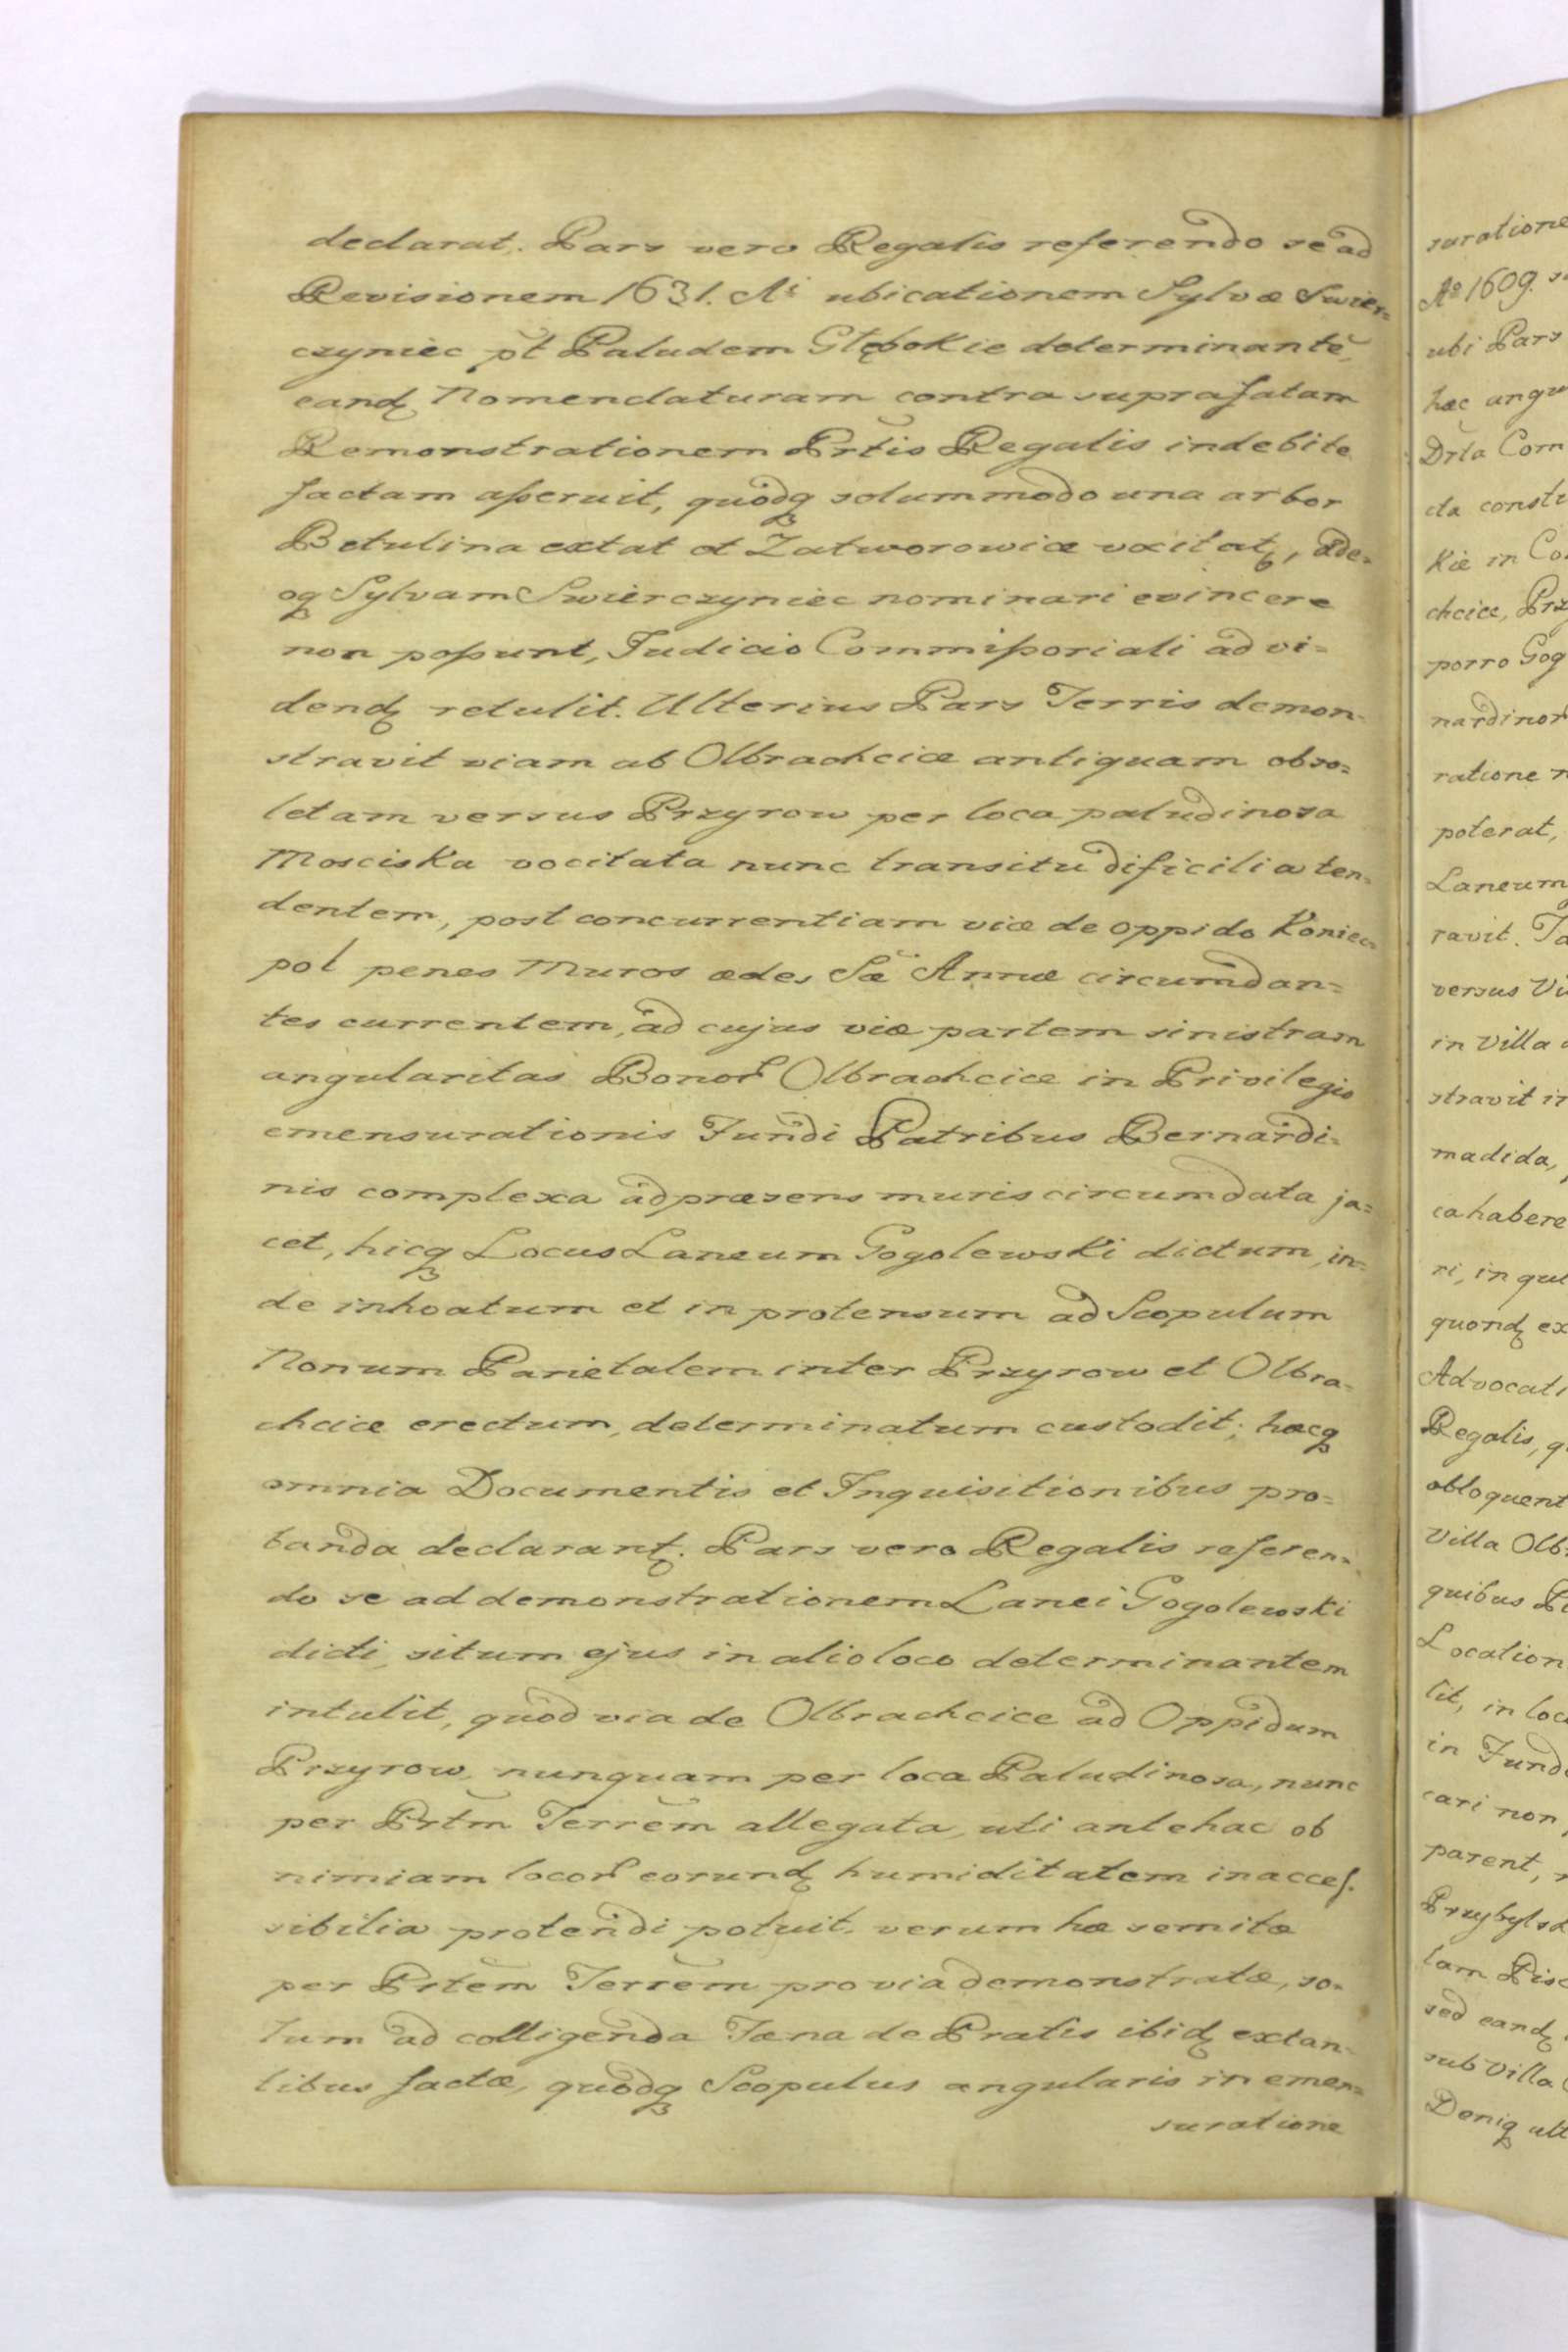 declarat. Pars vero Regalis referendo se ad
Revisionem 1631. Ai ubicationem Sylvæ Swier=
czyniec pt̃ Paludem Głębokie determinantẽ,
eandꝫ Nomendaturam contra suprafatam
Remonstrationem Prt̃is Regalis indebite
factam aſseruit, quodqꝫ solummodo una arbor
Betulina extat et Zatworowiæ vocitatꝫ, Ade=
oqꝫ Sylvam Swierczyniec nominari evincere
non poſsunt, Judicio Commiſsoriali ad vi=
dendꝫ retulit. Ulterius Pars Terris demon=
stravit viam ab Olbrachcice antiquam obso=
letam versus Przyrow per loca paludinosa
Mosciska vocitata nunc transitu dificilia ten=
dentem, post concurrentiam viæ de oppido Koniec=
pol penes Muros ædes Sæ̃ Annæ circumdan=
tes currentem, ad cujus viæ partem sinistram
angularitas Bonoꝝ Olbrachcice in Privilegio
emensurationis Fundi Patribus Bernardi=
nis complexa ad præsens muris circumdata ja=
cet, hicqꝫ Locus Laneum Gogolewski dictum, in=
de inhoatum et in protensum ad Scopulum
Nonum Parietalem inter Przyrow et Olbra=
chcice erectum, determinatum custodit; hæcqꝫ
omnia Documentis et Inquisitionibus pro=
banda declarantꝫ. Pars vero Regalis referen=
do se ad demonstrationem Lanei Gogolewski
dicti, situm ejus in alio loco determinantem
intulit, quod via de Olbrachcice ad Oppidum
Przyrow, nunquam per loca Paludinosa, nunc
per Prt̃m Terrẽm allegata, uti antehac ob
nimiam locoꝝ eorundꝫ humiditatem inacceſ=
sibilia protendi potuit, verum hæ semitæ
per Prt̃em Terrẽm pro via demonstratæ, so=
lum ad colligenda Fæna de Pratis ibidꝫ extan=
tibus factæ, quodqꝫ Scopulus angularis in emen=
suratione
suratione
Aº 1609. s
ubi Pars
hæc angu
Dr̃ta Com
cta constr
Kie in Co
chcice, Prz
porro Gog
nardinor
ratione n
poterat,
Laneum
ravit. Ta
versus Vi
in Villa
stravit in
madida,
ca habere
ri, in qui
quondꝫ ex
Advocati
Regalis, q
obloquent
Villa Olb
quibus P
Location
lit, in loc
in Fund
cari non
parent,
Przybyls
lam Pisc
sed eandꝫ
sub Villa
Deniqꝫ ult